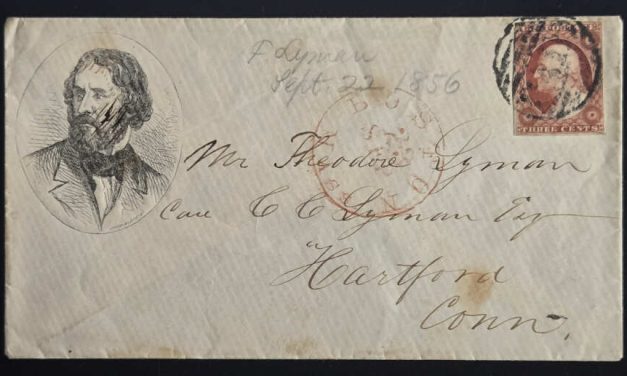 F Lyman
Sept. 22 1856
BOSTON
THREE CENTS
Mr Theodore Lyman
Care C C Lyman Esq
Hartford
Conn.